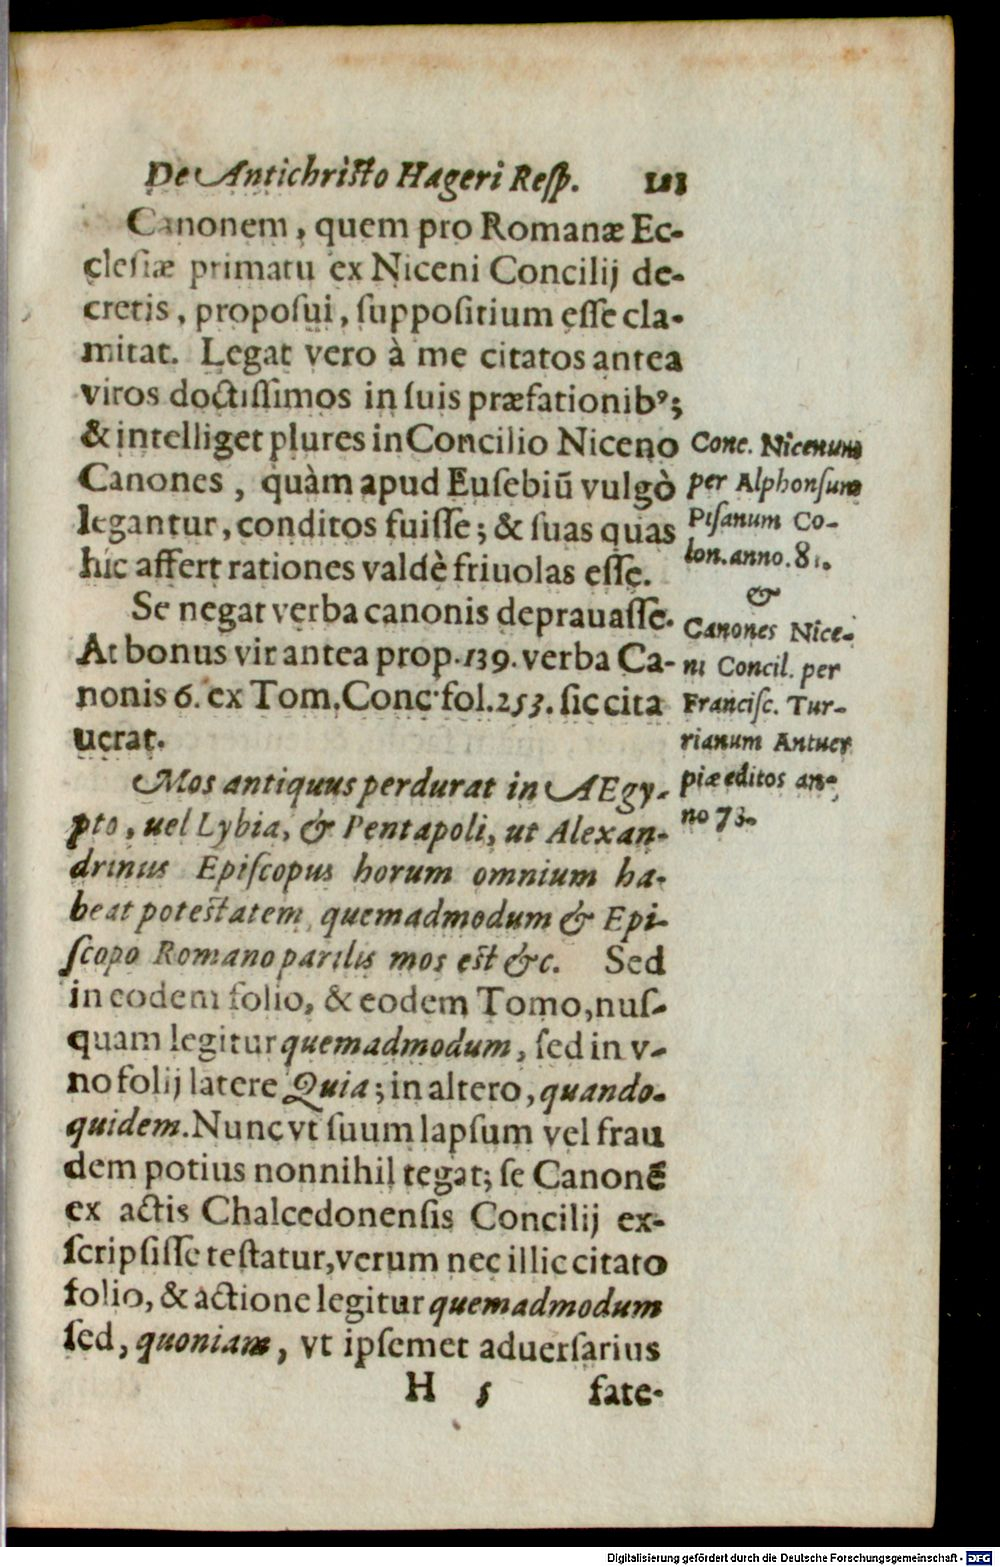 De Antichristo Hageri Resp. 121
Canonem, quem pro Romanæ Ec-
clesiæ primatu ex Niceni Concilij de-
cretis, proposui, suppositium esse cla-
mitat. Legat vero à me citatos antea
viros doctissimos in suis præfationibꝰ;
& intelliget plures in Concilio Niceno
Canones, quàm apud Eusebiũ vulgò
legantur, conditos fuisse; & suas quas
hic affert rationes valdè friuolas esse.
Conc. Nicenum
per Alphonsum
Pisanum Co-
lon. anno. 81.
&
Canones Nice-
ni Concil. per
Francisc. Tur-
rianum Antuer
piæ editos an-
no 73.
Se negat verba canonis deprauasse.
At bonus vir antea prop. 139. verba Ca-
nonis 6. ex Tom. Conc. fol. 253. sic cita
uerat.
Mos antiquus perdurat in AEgy-
pto, uel Lybia, & Pentapoli, ut Alexan-
drinus Episcopus horum omnium ha-
beat potestatem, quemadmodum & Epi-
scopo Romano parilis mos est &c. Sed
in eodem folio, & eodem Tomo, nus-
quam legitur quemadmodum, sed in v-
no folij latere Quia; in altero, quando-
quidem. Nunc vt suum lapsum vel frau
dem potius nonnihil tegat; se Canonẽ
ex actis Chalcedonensis Concilij ex-
scripsisse testatur, verum nec illic citato
folio, & actione legitur quemadmodum
sed, quoniam, vt ipsemet aduersarius
H 5 fate-
Digitalisierung gefördert durch die Deutsche Forschungsgemeinschaft - DFG